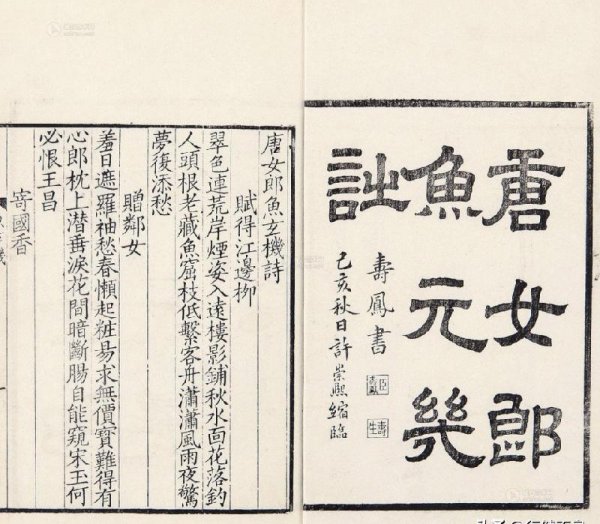 唐女郎
魚元機
詩
壽鳳書
己亥秋日許崇熙縮臨
唐女郎魚玄機詩
賦得江邊柳
翠色連荒岸煙姿入遠樓影鋪秋水面花落釣
人頭根老藏魚窟枝低繫客舟瀟瀟風雨夜驚
夢復添愁
贈鄰女
羞日遮羅袖愁春懶起粧易求無價寶難得有
心郎枕上潜垂淚花間暗斷腸自能窺宋玉何
必恨王昌
寄國香